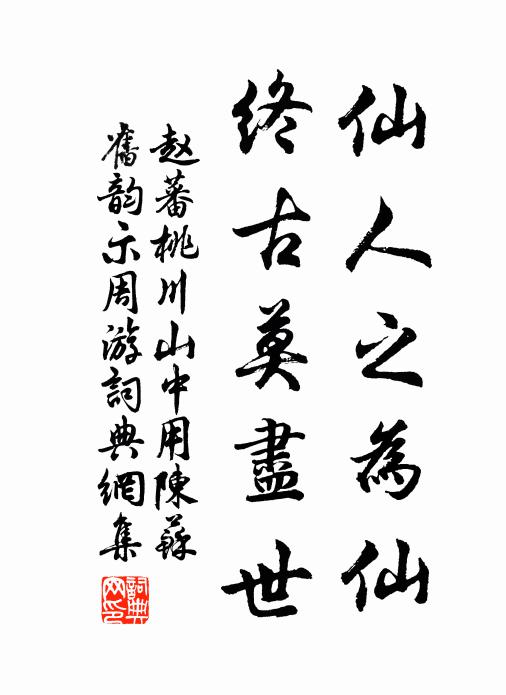 仙人之為仙
終古莫盡世
赵蕃桃川山中用陳蘇
舊韵示周游詞典網集
詞典网印